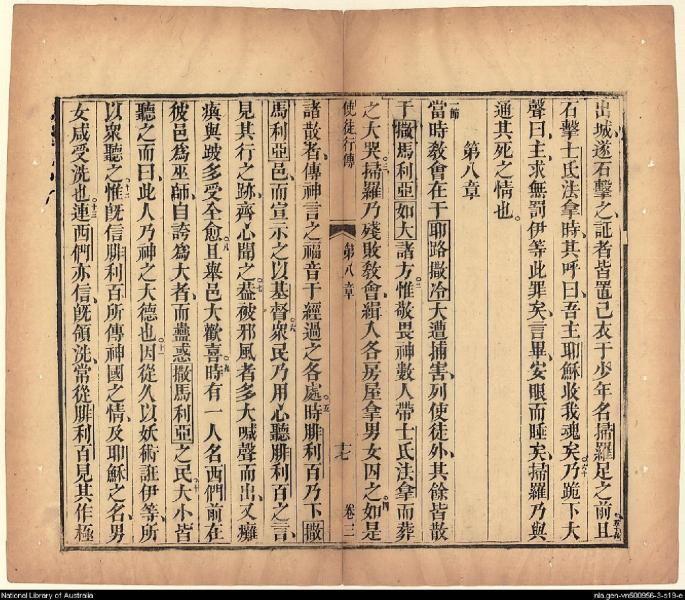 出城遂石擊之証者皆置己衣于少年名掃羅足之前且
石擊士氏法拿時其呼曰吾主耶穌收我魂矣乃跪下大
聲曰主求無罰伊等此罪矣言畢安眼而睡矣掃羅乃與
通其死之情也
第八章
一節
當時教會在于耶路撒冷大遭捕害列使徒外其餘皆散
于撒馬利亞如大諸方惟敬畏神數人帶士氏法拿而葬
之大哭掃羅乃殘敗教會緝人各房屋拿男女囚之如是
使徒行傳 第八章 卷三
諸散者傳神言之福音于經過之各處時腓利百乃下撒
馬利亞邑而宣示之以基督眾民乃用心聽腓利百之言
見其行之跡齊心聞之蓋被邪風者多大喊聲而出又癱
瘨與跛多受全愈且舉邑大歡喜時有一人名西們前在
彼邑為巫師自誇為大者而蠱惑撒馬利亞之民大小皆
聽之而曰此人乃神之大德也因從久以妖術誑伊等所
以眾聽之惟既信腓利百所傳神國之情及耶穌之名男
女咸受洗也連西們亦信既領洗常從腓利百見其作極